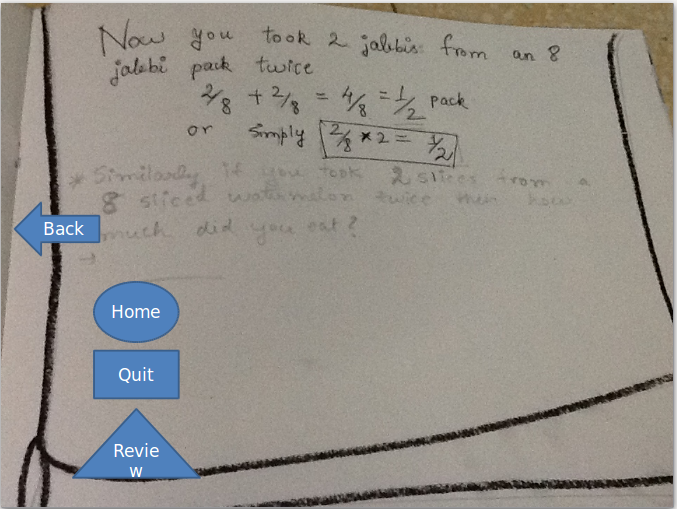 Now you took 2 jalebis from an 8
jalebi pack twice
2/8 + 2/8 = 4/8 = 1/2 pack
or simply 2/8 * 2 = 1/2
* Similarly if you took 2 slices from a
8 sliced watermelon twice then how
much did you eat?
→
Back
Home
Quit
Revie
w